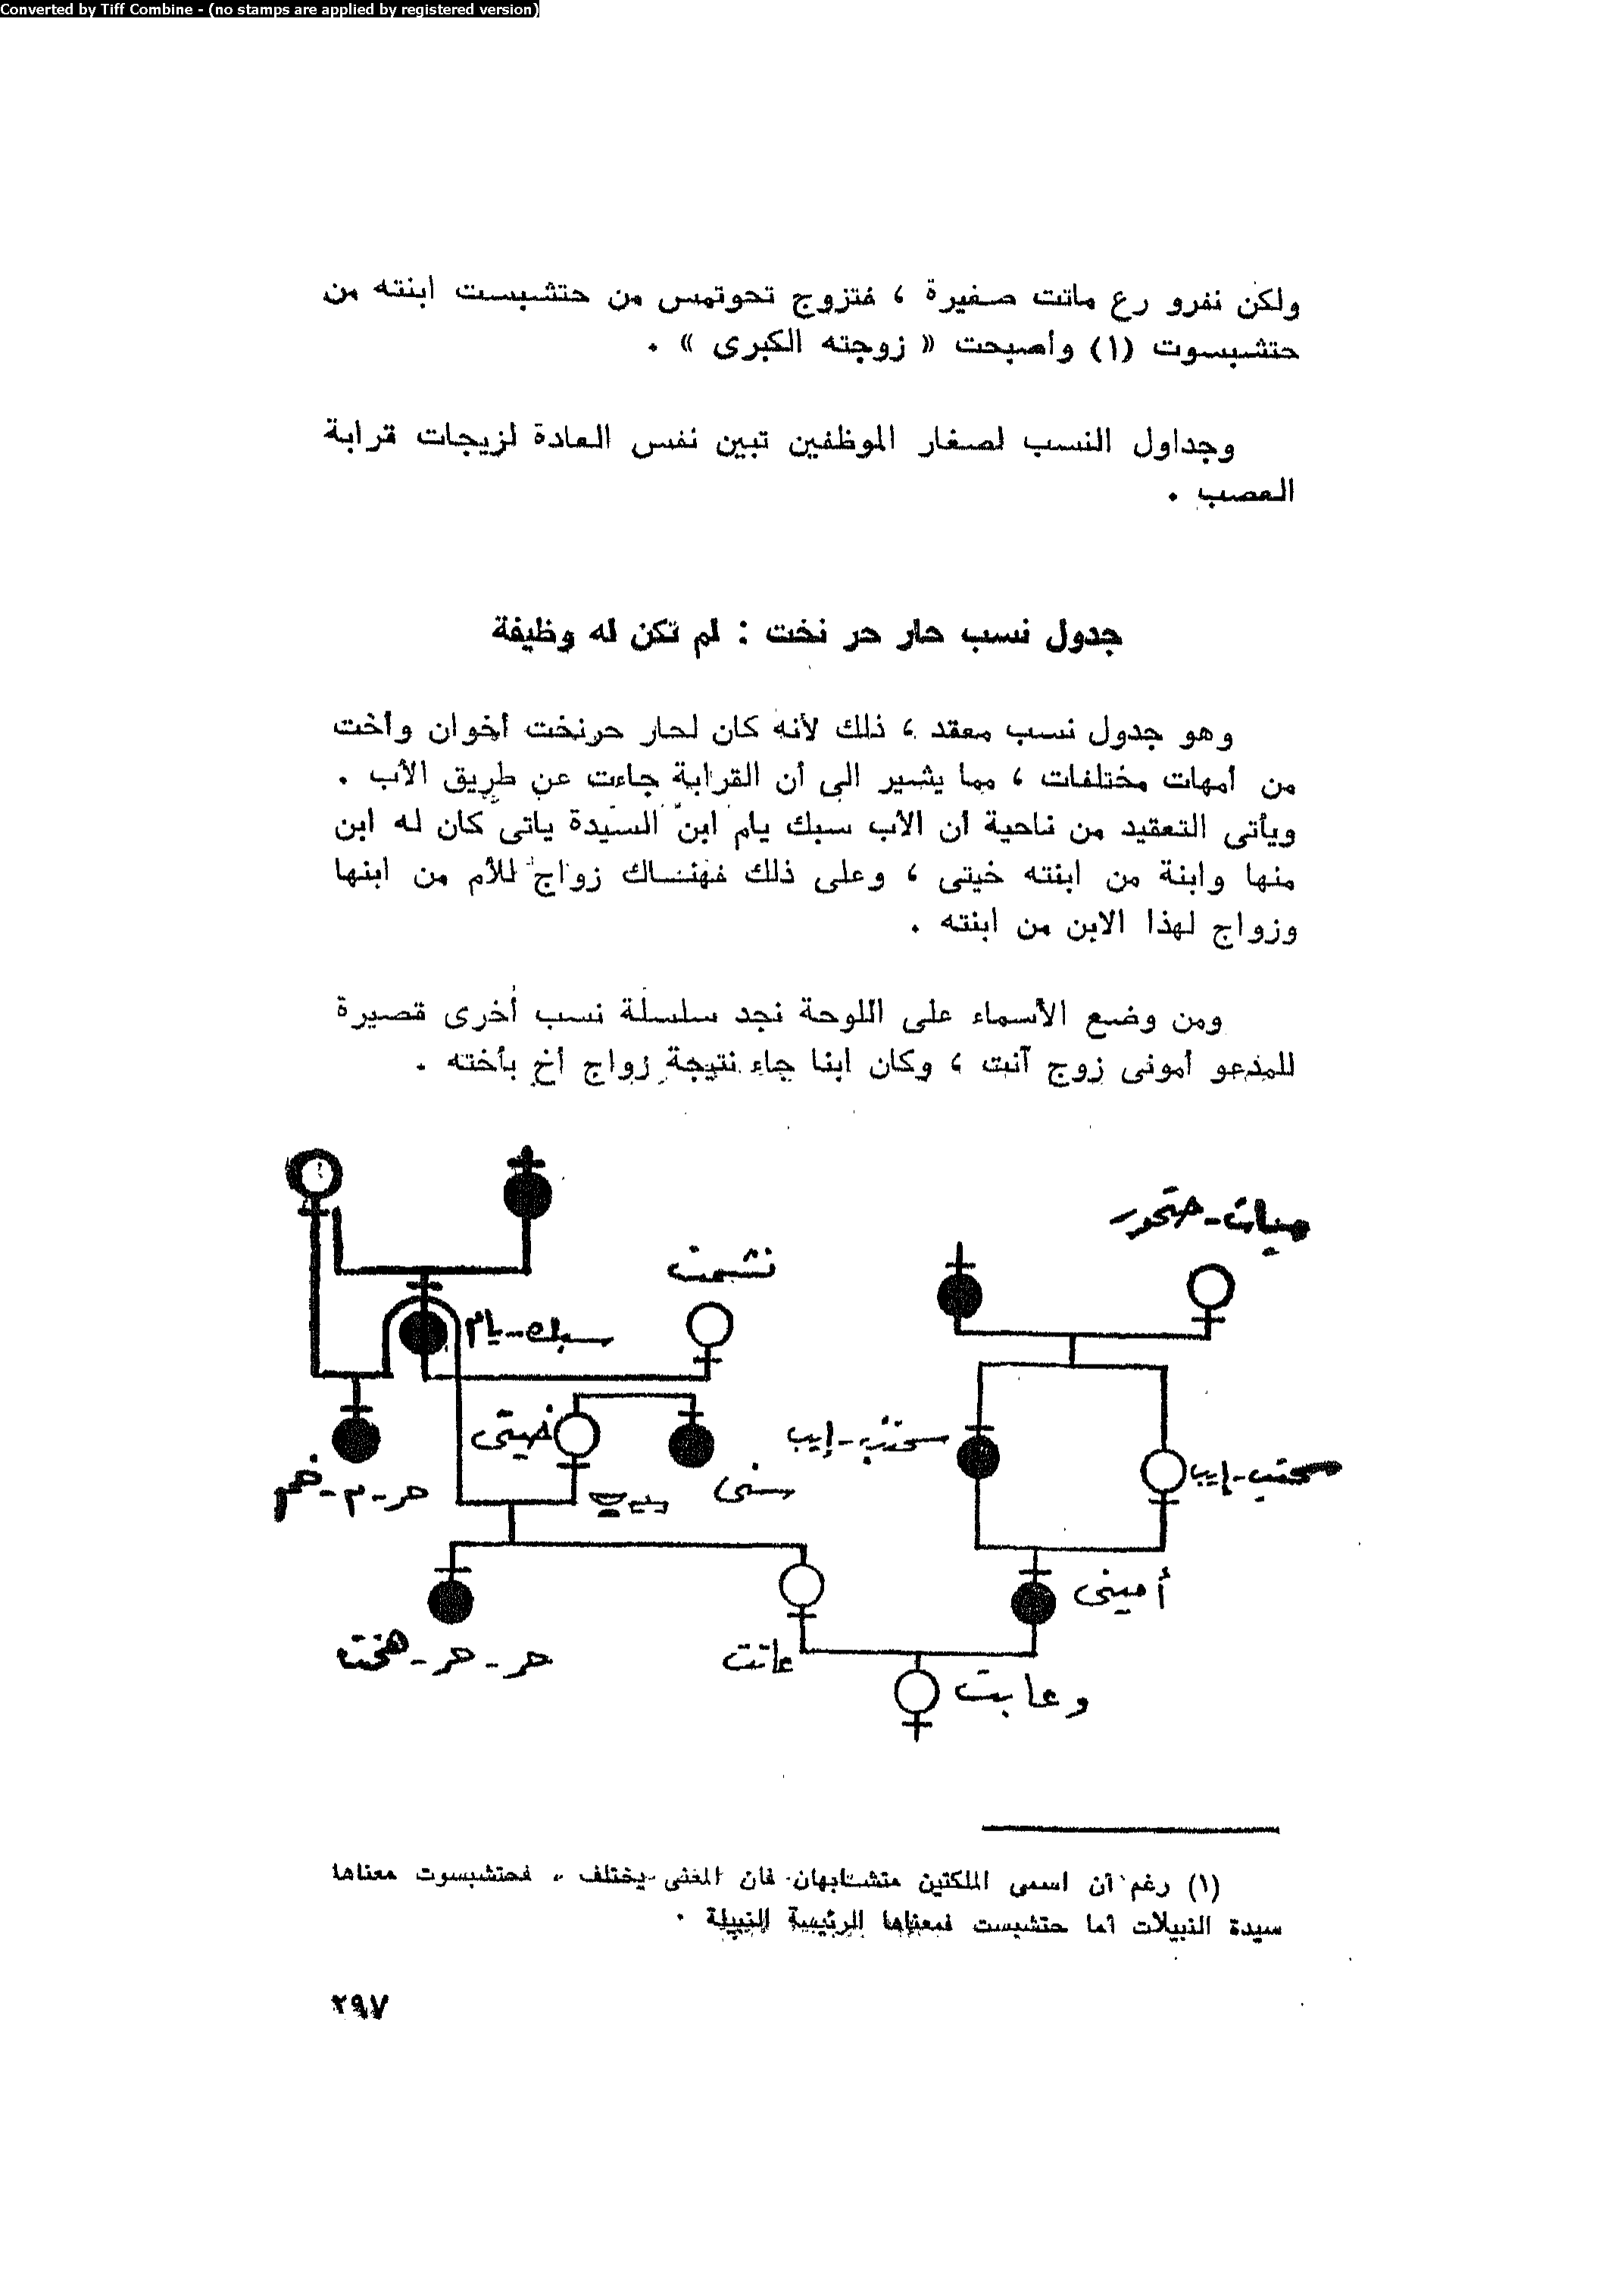 Converted by Tiff Combine - (no stamps are applied by registered version)
ولكن نفرو رع ماتت صغيرة ، فتزوج تحوتمس من حتشبست ابنته من
حتشبسوت (١) وأصبحت « زوجته الكبرى » .
وجداول النسب لصغار الموظفين تبين نفس العادة لزيجات قرابة
العصب .
جدول نسب حار حر نخت : لم تكن له وظيفة
وهو جدول نسب معقد ، ذلك لأنه كان لحار حرنخت أخوان وأخت
من أمهات مختلفات ، مما يشير الى أن القرابة جاءت عن طريق الأب .
ويأتى التعقيد من ناحية أن الأب سبك يام ابن السيدة ياتى كان له ابن
منها وابنة من ابنته خيتى ، وعلى ذلك فهناك زواج للأم من ابنها
وزواج لهذا الابن من ابنته .
ومن وضع الأسماء على اللوحة نجد سلسلة نسب أخرى قصيرة
للمدعو أمونى زوج آنت ، وكان ابنا جاء نتيجة زواج أخ بأخته .
حتحور
نشمت
سبك - يام
خيتى
إيب
إيب
سنى
حر - م -
أمينى
حر - حر -
عانت
وعابت
(١) رغم أن اسمى الملكتين متشابهان فان المعنى يختلف ، فحتشبسوت معناها
سيدة النبيلات أما حتشبست فمعناها الرئيسة النبيلة .
٢٩٧